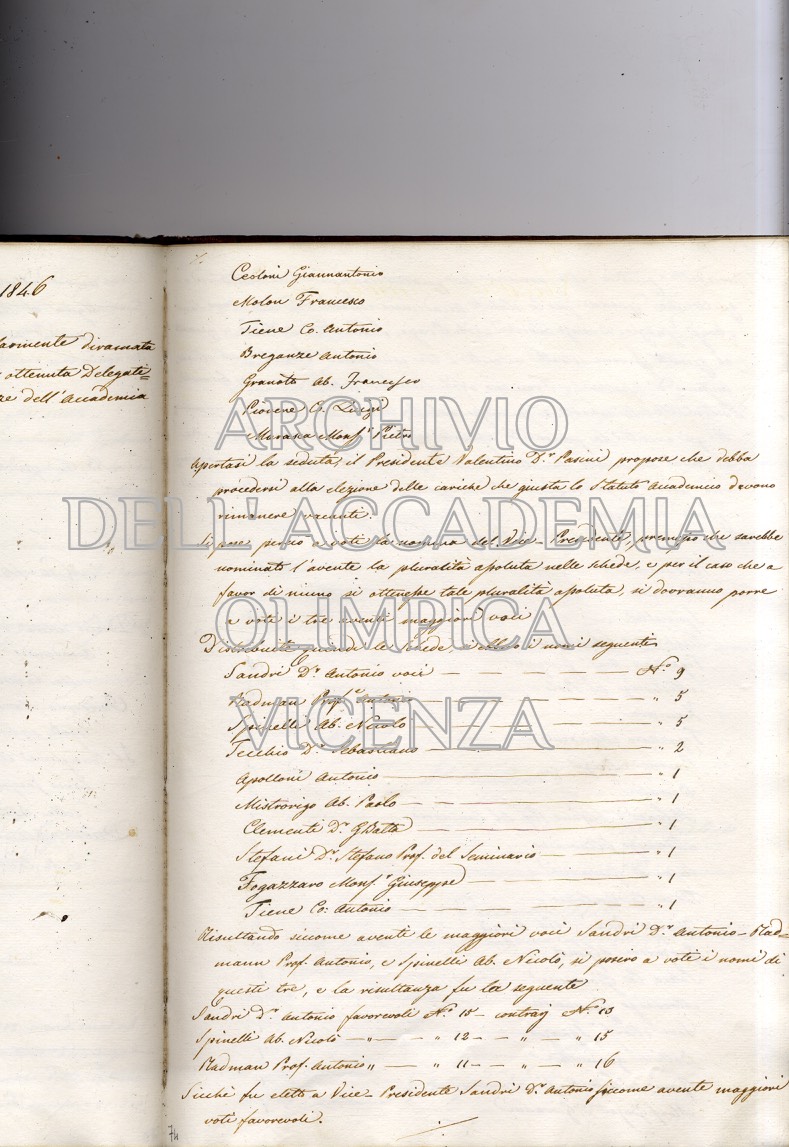 1846
diramata
ottenuta Delegati=
ze dell'Accademia
Cestoni Giannantonio
Molon Francesco
Tiene Co. Antonio
Breganze Antonio
Granota Ab. Francesco
Piovene Co. Luigi
Marasca Monsr. Pietro
Apertasi la seduta, il Presidente Valentino Dr. Pasini propose che debba
procedersi alla elezione delle cariche che giusta lo Statuto Accademico devono
rimanere vacanti.
Si pose perciò a voti la nomina del Vice-Presidente, premesso che sarebbe
nominato l'avente la pluralità assoluta nelle schede, e per il caso che a
favor di niuno si ottenesse tale pluralità assoluta, si dovranno porre
a voti i tre aventi maggiori voti
Distribuite quindi le schede, i nomi seguenti
Sandri Dr. Antonio voci — — — — No. 9
Radman Profr. Antonio — — — " 5
Spinelli Ab. Nicolò — — — " 5
Tecchio Dr. Sebastiano — " 2
Apolloni Antonio — " 1
Mistrorigo Ab. Paolo — — — " 1
Clementi Dr. GBatta — " 1
Stefani Dr. Stefano Prof. del Seminario — " 1
Fogazzaro Monsr. Giuseppe — " 1
Tiene Co: Antonio — — " 1
Risultando siccome aventi le maggiori voci Sandri Dr. Antonio - Rad=
mann Prof. Antonio, e Spinelli Ab. Nicolò, si posero a voti i nomi di
questi tre, e la risultanza fu la seguente
Sandri Dr. Antonio favorevoli No. 15 - contrarj No. 13
Spinelli Ab. Nicolò — " — — " 12 — " — " 15
Radman Prof. Antonio " — — " 11 — — " — " 16
Sicchè fu eletto a Vice-Presidente Sandri Dr. Antonio siccome avente maggiori
voti favorevoli.
74
ARCHIVIO
DELL'ACCADEMIA
OLIMPICA
VICENZA